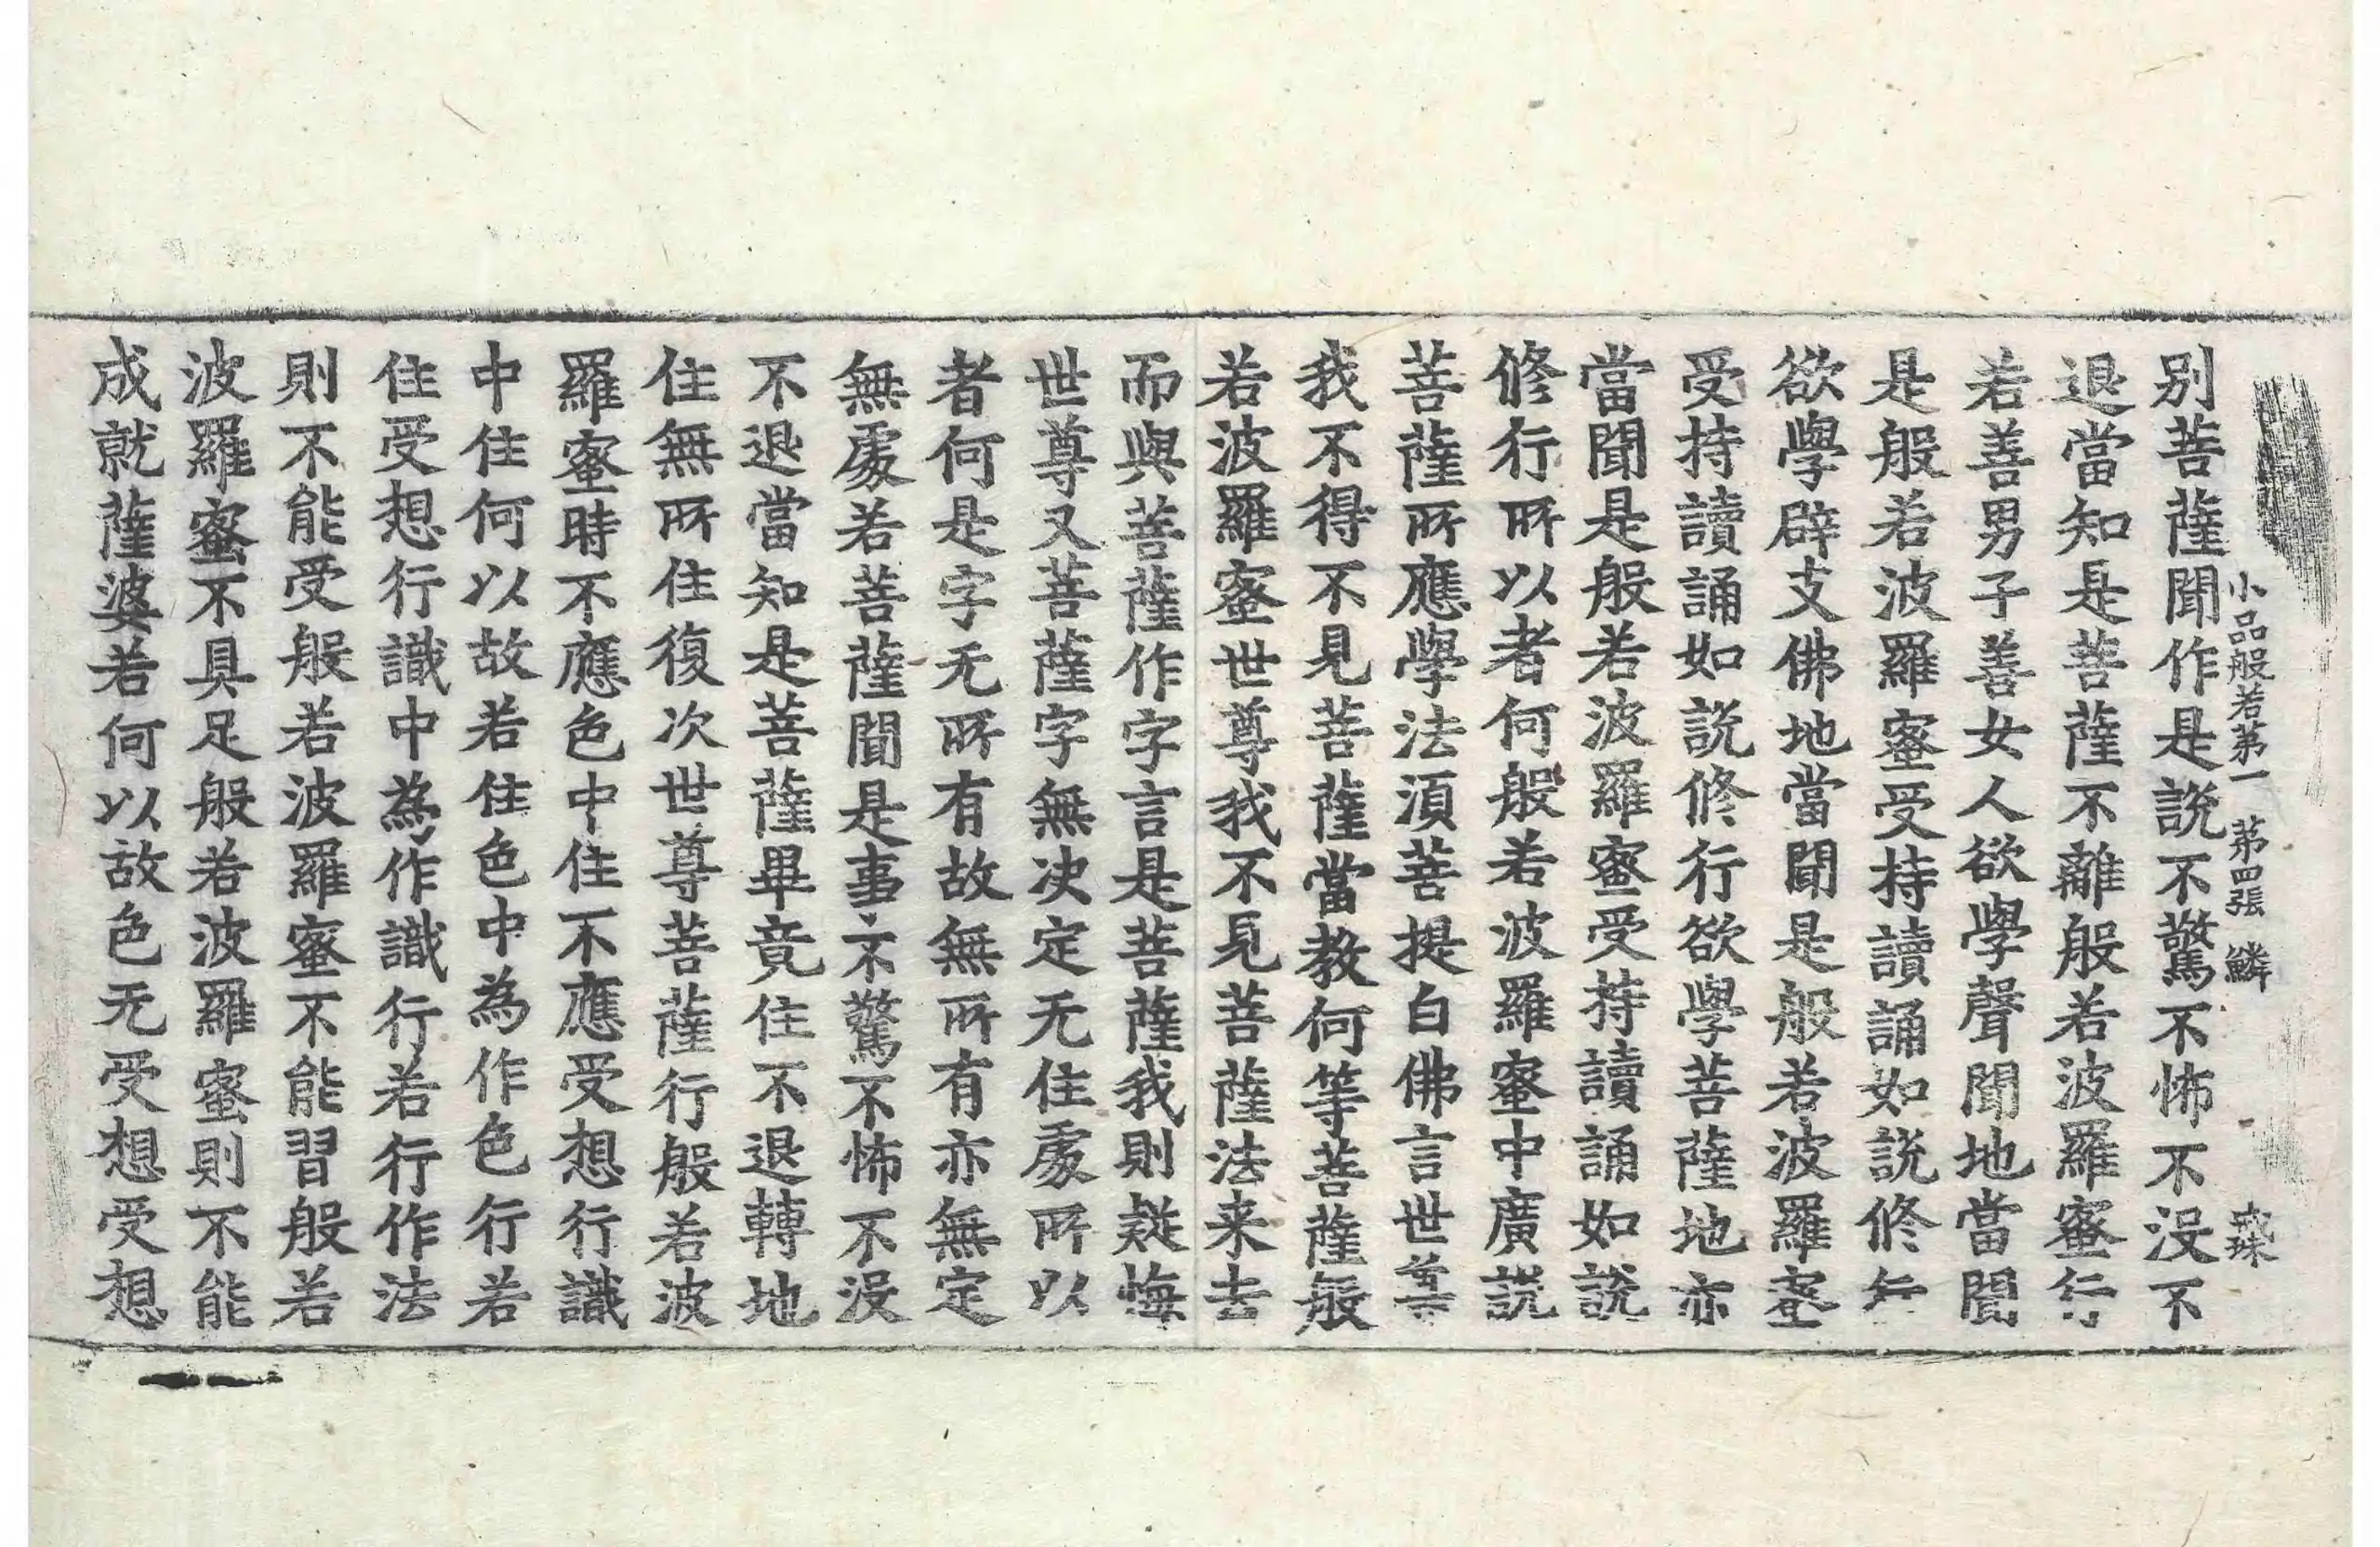 小品般若第一 第四張 鱗
別菩薩聞作是說不驚不怖不没不
退當知是菩薩不離般若波羅蜜行
若善男子善女人欲學聲聞地當聞
是般若波羅蜜受持讀誦如說修行
欲學辟支佛地當聞是般若波羅蜜
受持讀誦如說修行欲學菩薩地亦
當聞是般若波羅蜜受持讀誦如說
修行所以者何般若波羅蜜中廣說
菩薩所應學法湏菩提白佛言世尊
我不得不見菩薩當教何等菩薩般
若波羅蜜世尊我不見菩薩法来去
而與菩薩作字言是菩薩我則疑悔
世尊又菩薩字無决定无住處所以
者何是字无所有故無所有亦無定
無處若菩薩聞是事不驚不怖不没
不退當知是菩薩畢竟住不退轉地
住無所住復次世尊菩薩行般若波
羅蜜時不應色中住不應受想行識
中住何以故若住色中為作色行若
住受想行識中為作識行若行作法
則不能受般若波羅蜜不能習般若
波羅蜜不具足般若波羅蜜則不能
成就薩婆若何以故色无受想受想